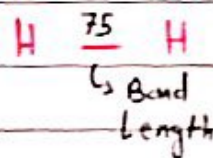 H 75 H
↳ Bond
Length